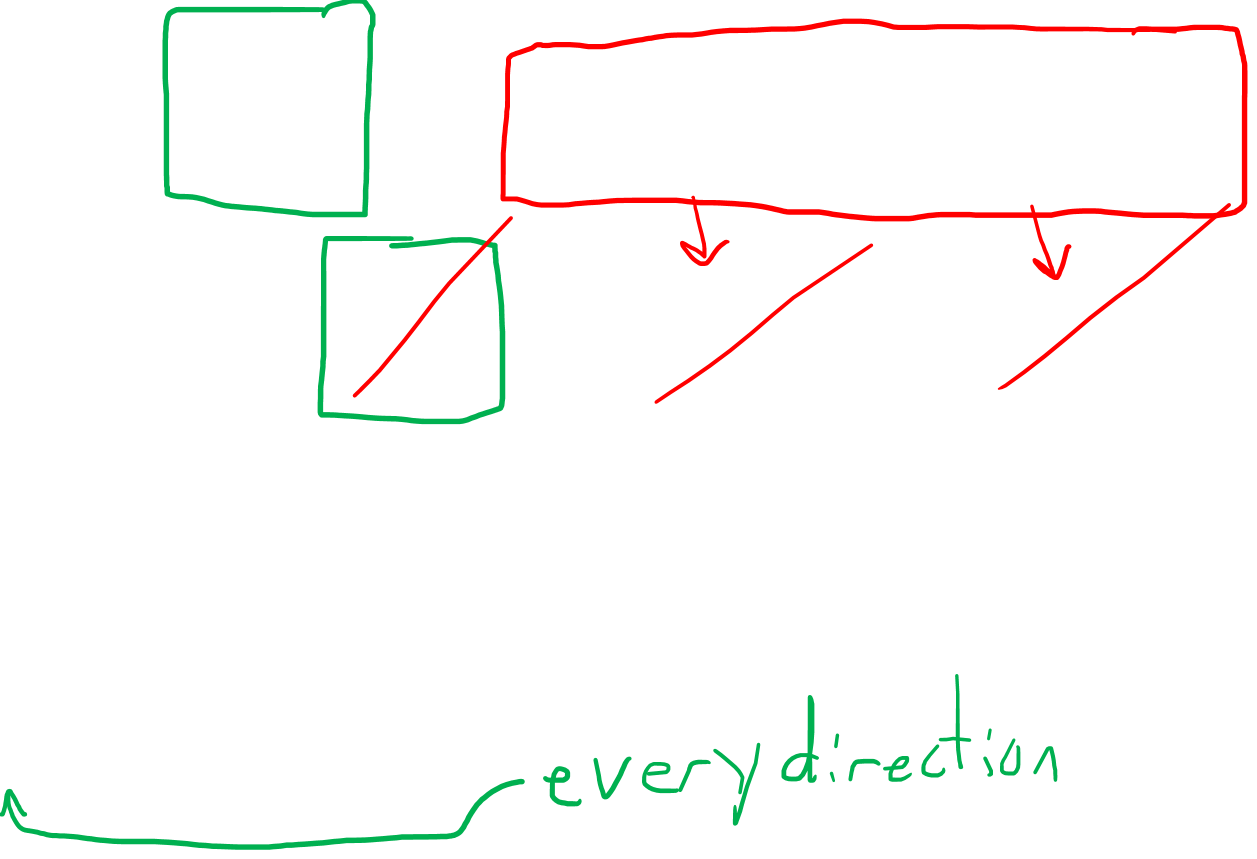 every direction